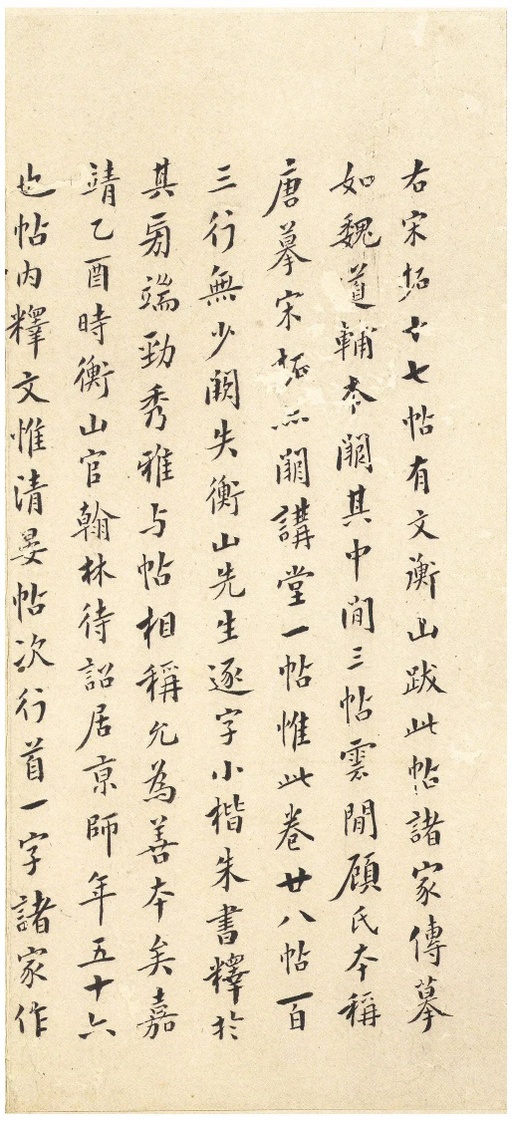 右宋拓十七帖有文衡山跋此帖諸家傳摹
如魏道輔本闕其中間三帖雲間顧氏本稱
唐摹宋拓亦闕講堂一帖惟此卷廿八帖一百
三行無少闕失衡山先生逐字小楷朱書釋於
其旁端勁秀雅与帖相稱允為善本矣嘉
靖乙酉時衡山官翰林待詔居京師年五十六
也帖内釋文惟清晏帖次行首一字諸家作